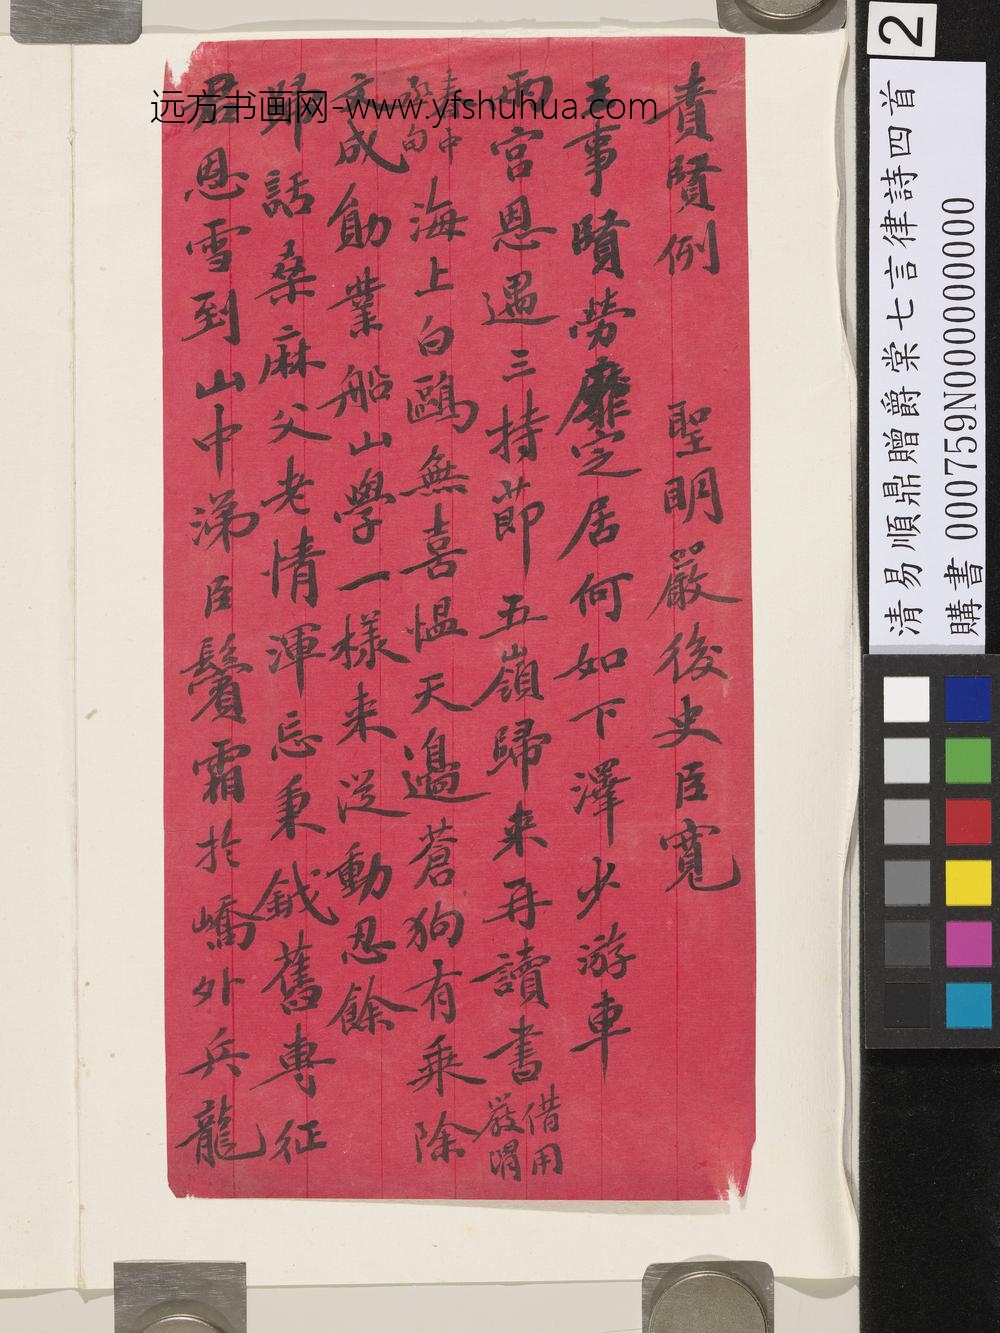 責賢例　聖明嚴後史臣寬
王事賢勞靡定居何如下澤少游車
兩宮恩遇三持節五嶺歸來再讀書借用
嚴
海上白鷗無喜慍天邊蒼狗有乘除
文成勛業船山學一樣来從動忍餘
歸話桑麻父老情渾忘秉鉞舊專征
君恩雪到山中涕臣鬢霜於嶠外兵龍
远方书画网-www.yfshuhua.com
2
清易順鼎贈爵棠七言律詩四首
購書 000759N000000000